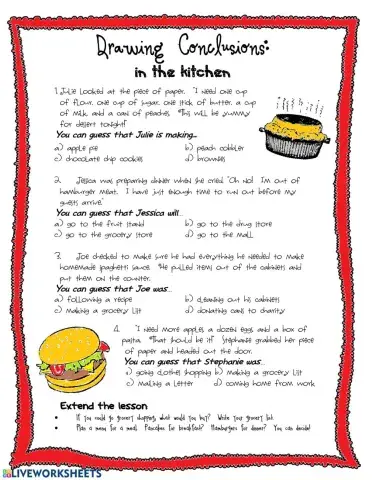 Drawing Conclusions:
in the kitchen
1. Julie looked at the piece of paper. "I need one cup
of flour, one cup of sugar, one stick of butter, a cup
of milk, and a can of peaches. This will be yummy
for desert tonight!"
You can guess that Julie is making...
a) apple pie b) peach cobbler
c) chocolate chip cookies d) brownies
2. Jessica was preparing dinner when she cried. "Oh No! I'm out of
hamburger meat. I have just enough time to run out before my
guests arrive."
You can guess that Jessica will...
a) go to the fruit stand b) go to the drug store
c) go to the grocery store d) go to the mall
3. Joe checked to make sure he had everything he needed to make
homemade spaghetti sauce. He pulled items out of the cabinets and
put them on the counter.
You can guess that Joe was...
a) following a recipe b) cleaning out his cabinets
c) making a grocery list d) donating cans to charity
4. "I need more apples, a dozen eggs, and a box of
pasta. That should be it!" Stephanie grabbed her piece
of paper and headed out the door.
You can guess that Stephanie was...
a) going clothes shopping b) making a grocery list
c) mailing a letter d) coming home from work
Extend the lesson
• If you could go grocery shopping, what would you buy? Write your grocery list.
• Plan a menu for a meal. Pancakes for breakfast? Hamburgers for dinner? You can decide!
LIVEWORKSHEETS